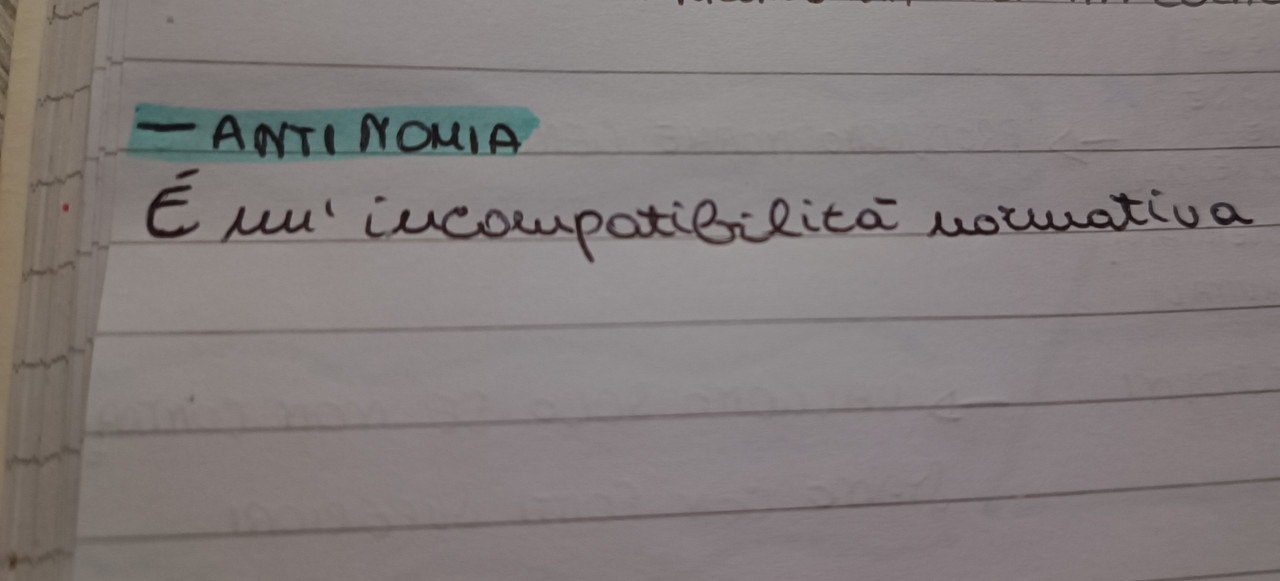 - ANTINOMIA
É un' incompatibilità normativa